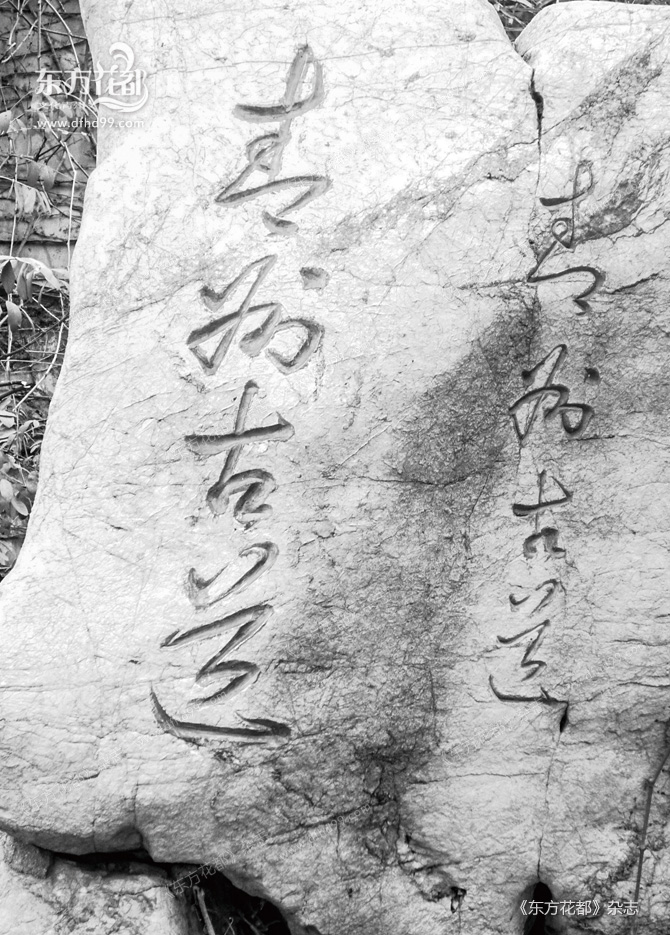 东方花都
www.dfhd99.com
青州古道
青州古道
《东方花都》杂志